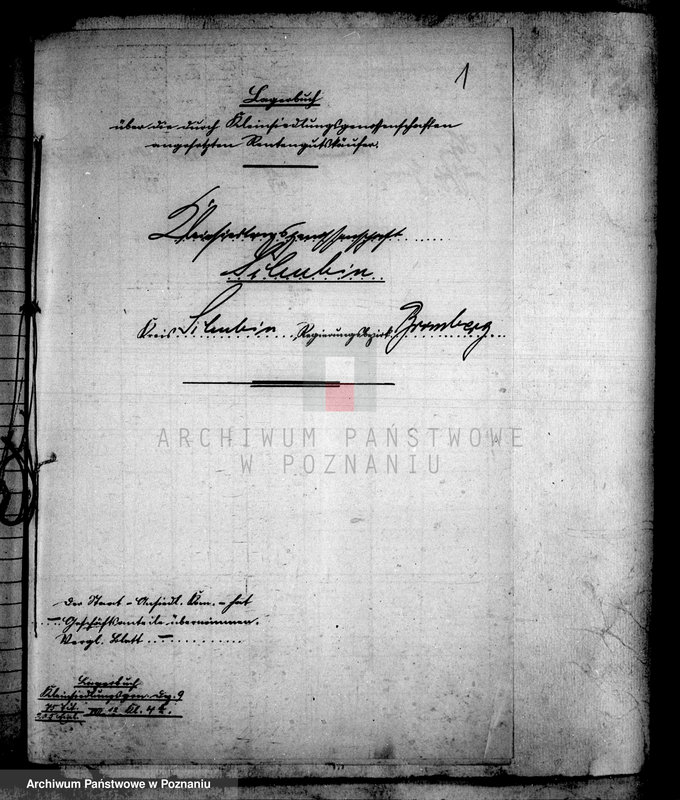 1
Lagerbuch
über die durch Kleinsiedlungsgenossenschaften
angesetzten Rentengutskäufer.
Kleinsiedlungsgenossenschaft
Schubin
Kreis Schubin Regierungsbezirk Bromberg
ARCHIWUM PAŃSTWOWE
W POZNANIU
Der Staat - Ansiedl. Kom. - hat
— Geschäftsanteile übernommen.
Vergl. Blatt —
Lagerbuch
Kleinsiedlungsgen.
Archiwum Państwowe w Poznaniu